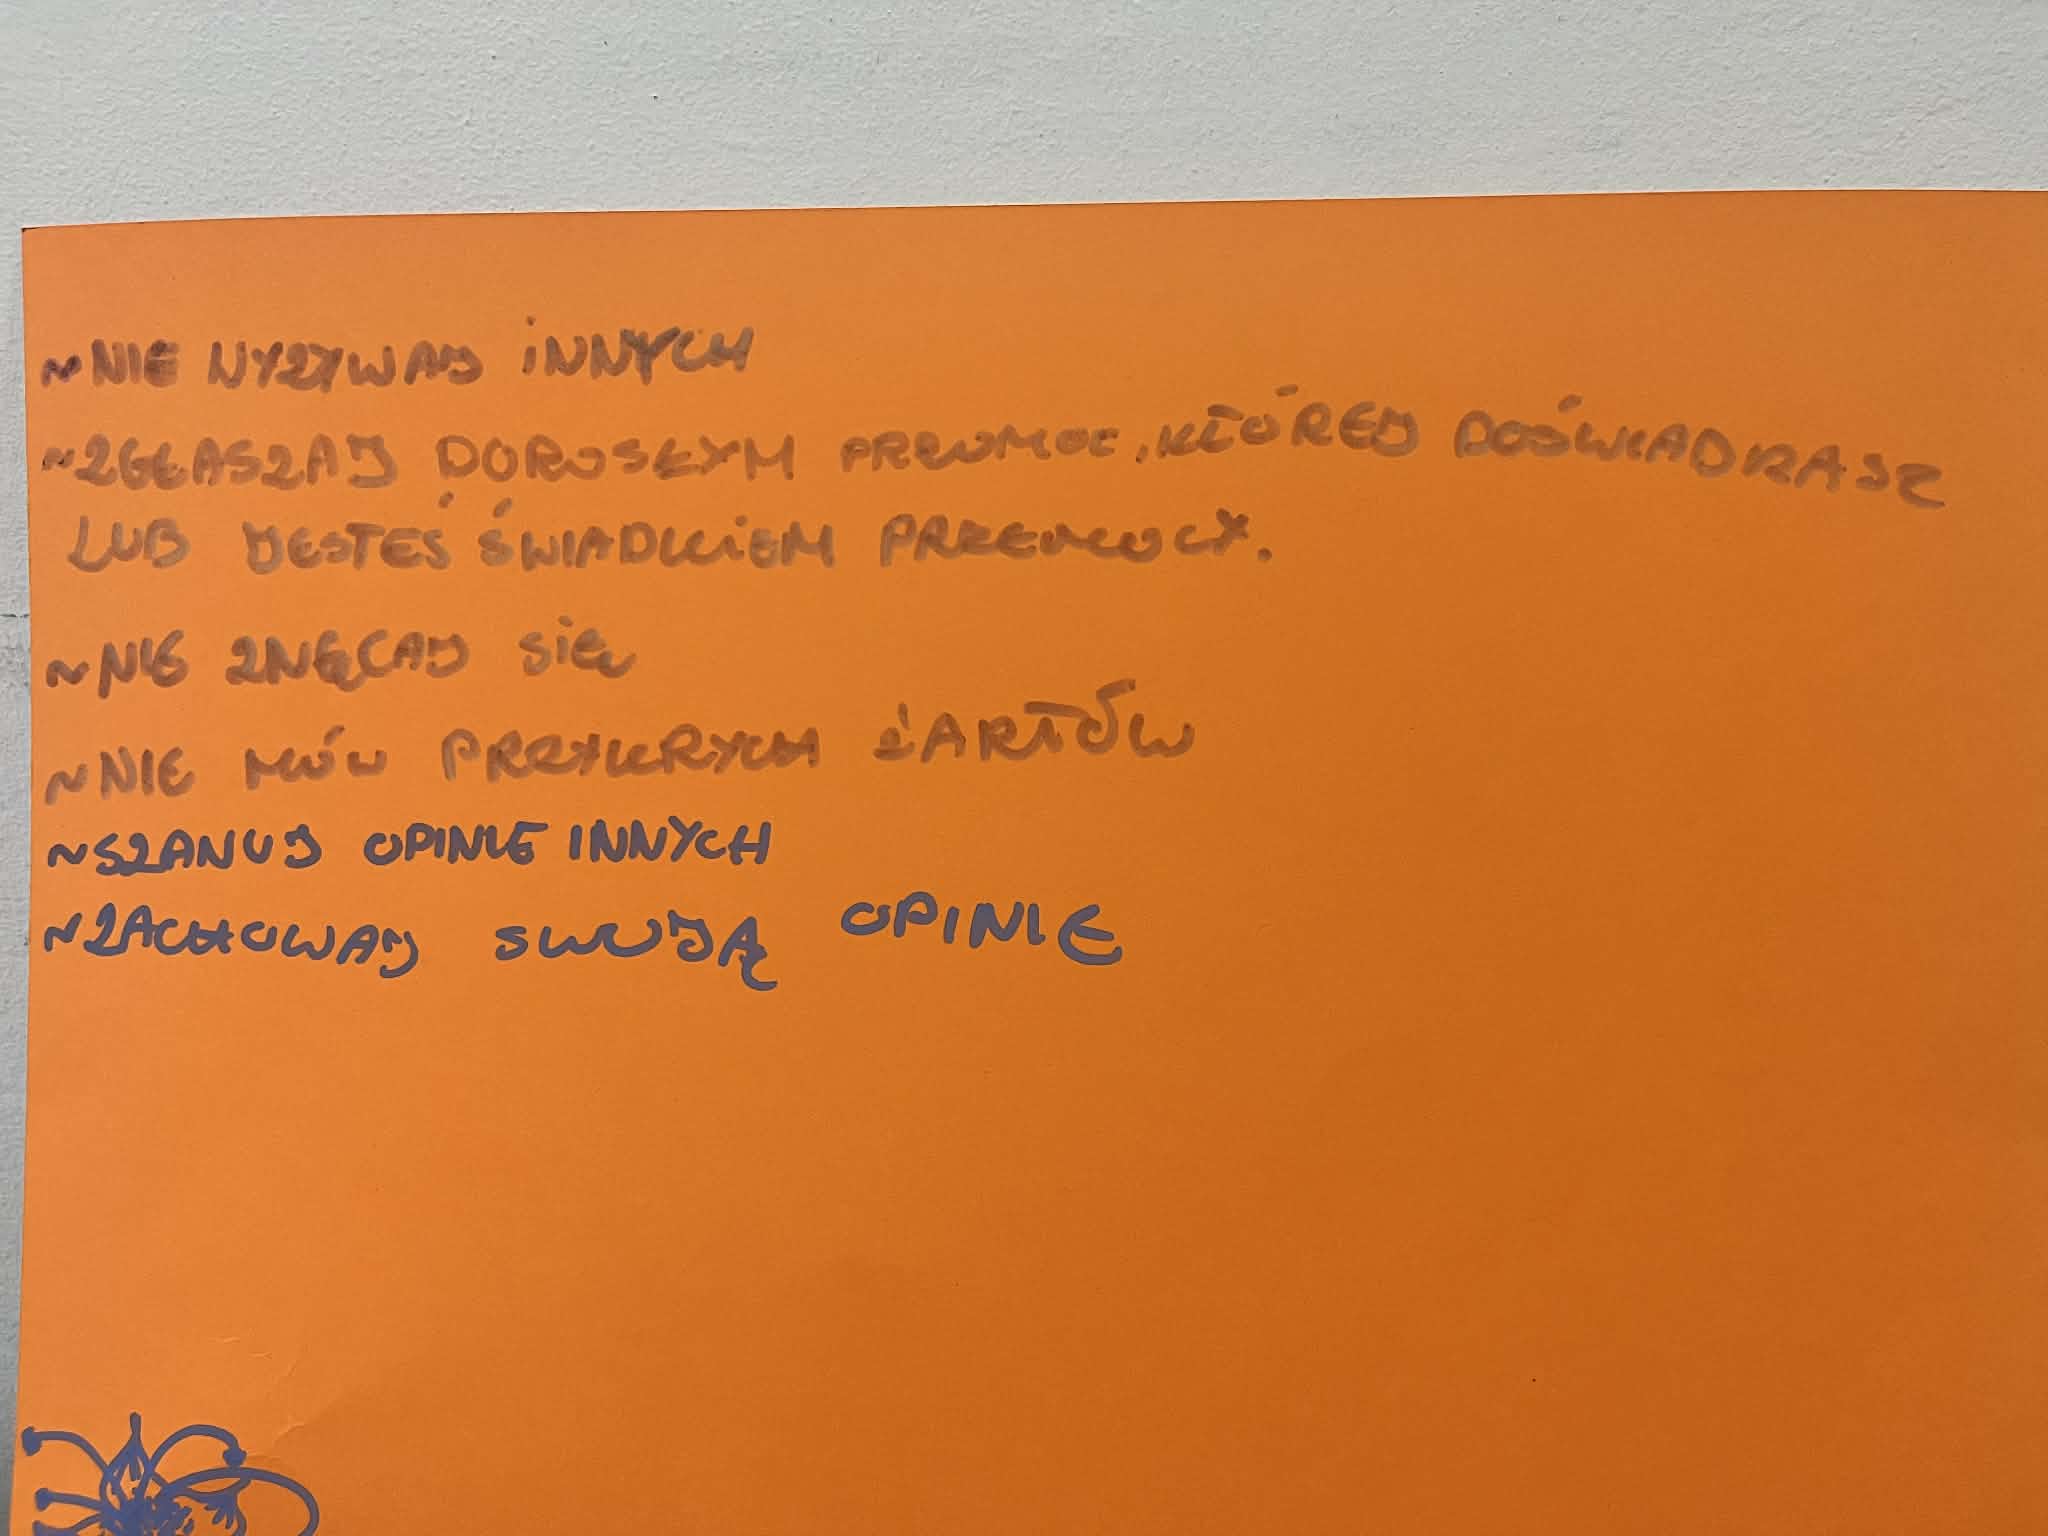 ~NIE WYZYWAJ INNYCH
~ZGŁASZAJ DOROSŁYM PRZEMOC, KTÓREJ DOŚWIADRASZ
LUB JESTEŚ ŚWIADKIEM PRZEMOCY.
~NIE ZNĘCAJ SIĘ
~NIE MÓW PRZYKRYCH ŻARTÓW
~SZANUJ OPINIE INNYCH
~ZACHOWAJ SWOJĄ OPINIE